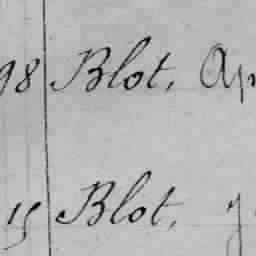 98 Blot, Ap
15 Blot,